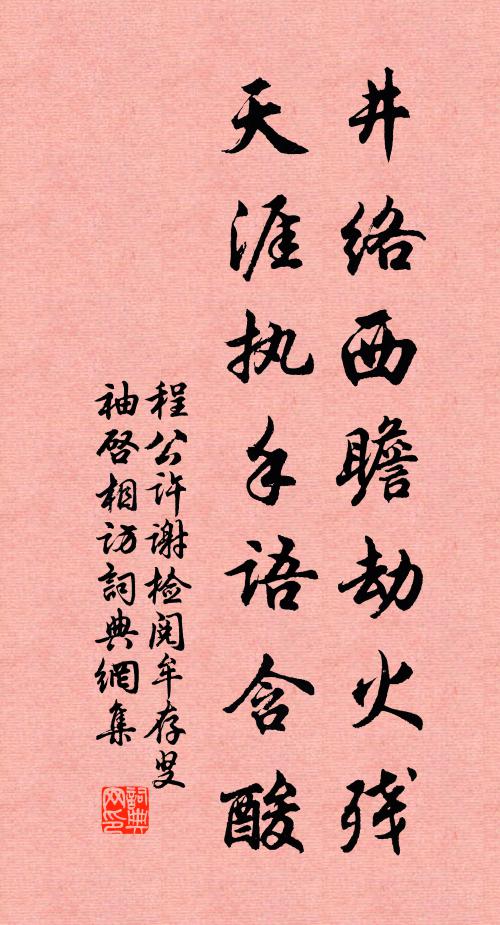 井络西瞻劫火残
天涯执手语含酸
程公许谢检阅牟存叟
袖启相访詞典網集
詞典網印